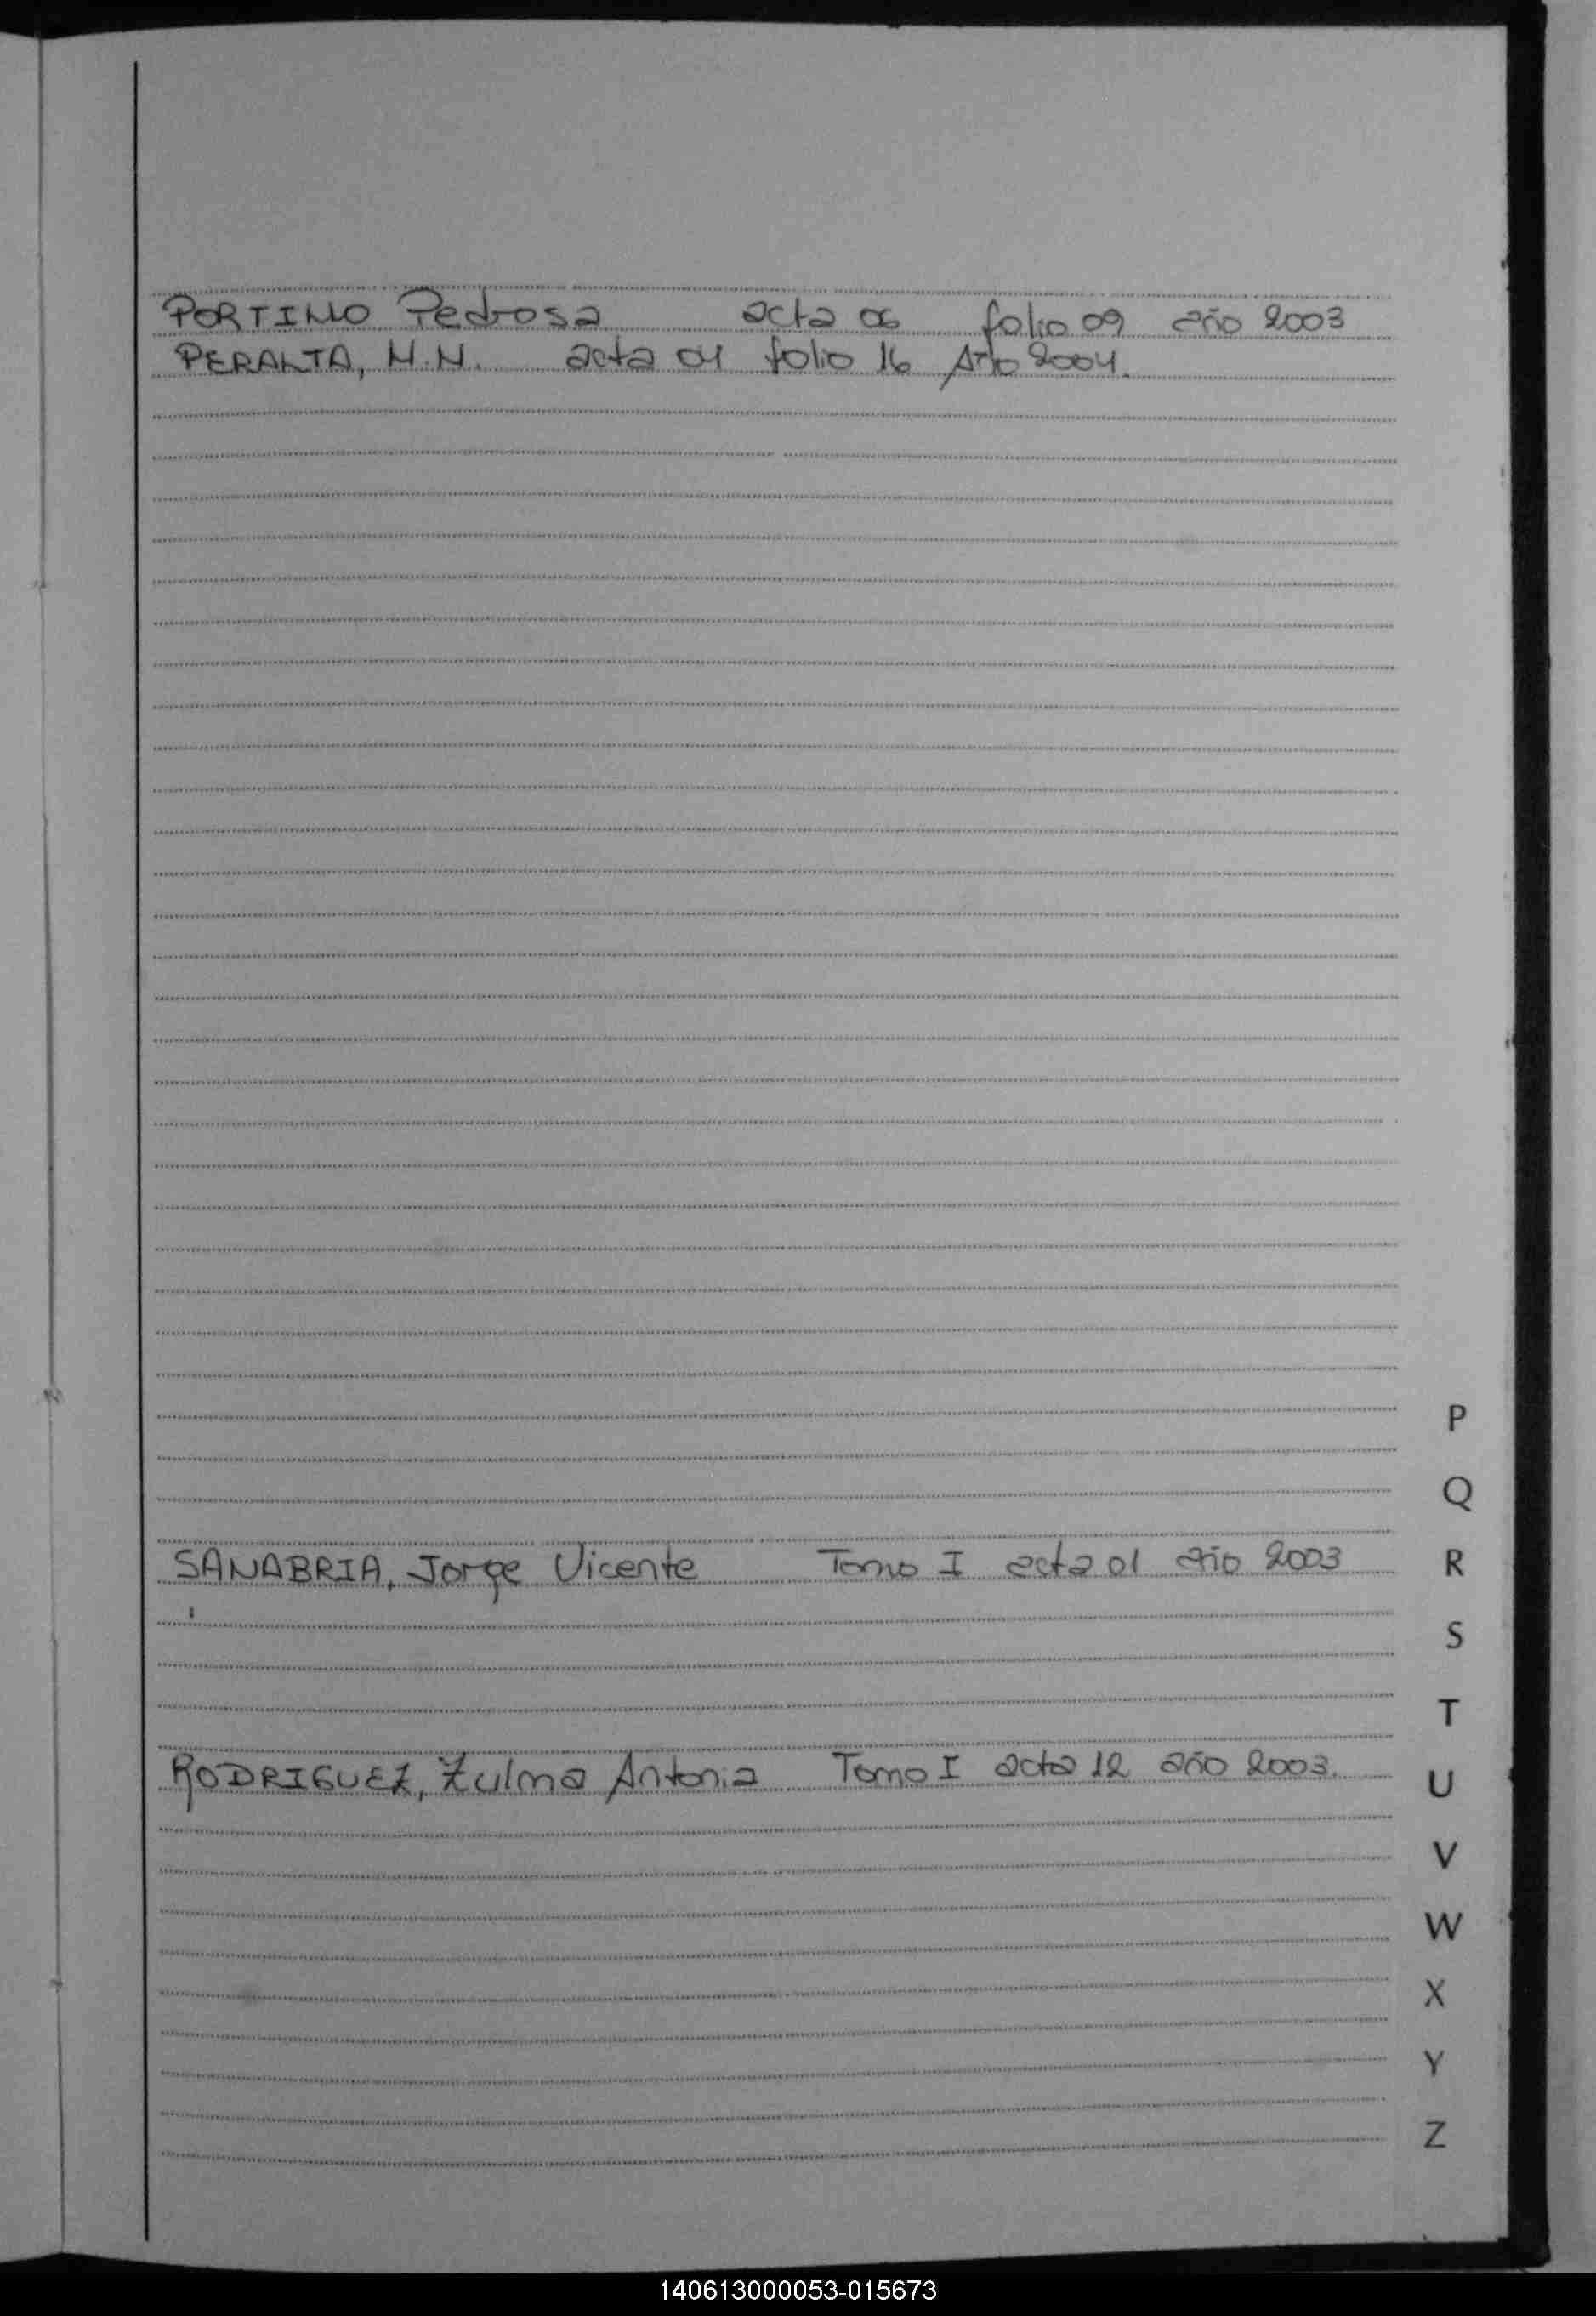 PORTILLO Pedrosa acta 06 folio 09 año 2003
PERALTA, N.N. acta 04 folio 16 Año 2004.
SANABRIA, Jorge Vicente Tomo I acta 01 año 2003
RODRIGUEZ, Zulma Antonia Tomo I acta 12 año 2003.
P
Q
R
S
T
U
V
W
X
Y
Z
140613000053-015673